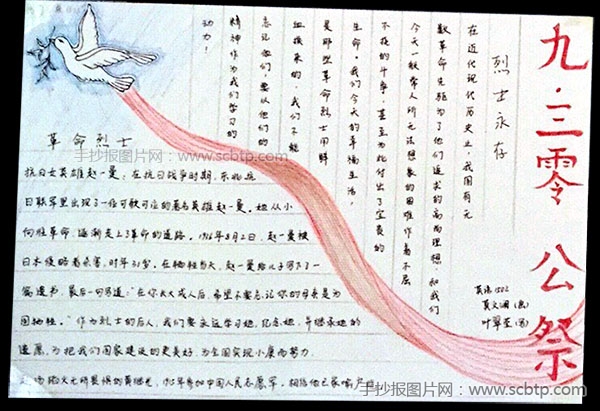 九·三零公祭
烈士永存
在近代现代历史上,我国有无
数革命先驱为了他们追求的高尚理想 和我们
今天一般常人所无法想象的困难作着不屈
不挠的斗争,甚至为此付出了宝贵的
生命。我们今天的幸福生活,
是那些革命烈士用鲜
血换来的,我们不能
忘记他们,要以他们的
精神作为我们学习的
动力!
革命烈士
手抄报图片网:www.scbtp.com
抗日女英雄赵一曼:在抗日战争时期,东北抗
日联军里出现了一位可歌可泣的著名英雄赵一曼。她从小
向往革命,逐渐走上了革命的道路。1936年8月2日,赵一曼被
日本侵略者杀害,时年31岁。在牺牲当天,赵一曼给儿子写下了一
篇遗书,最后一句写道:"在你长大成人后,希望不要忘记你的母亲是为
国牺牲。"作为烈士的后人,我们要永远学习她,纪念她,并继承她的
遗愿,为把我们国家建设的更美好,为全国实现小康而努力。
的黄继光,1952年参加中国人民志愿军。相信他已家喻户晓
英语1522
莫文 (画)
叶翠 (写)
手抄报图片网:www.scbtp.com